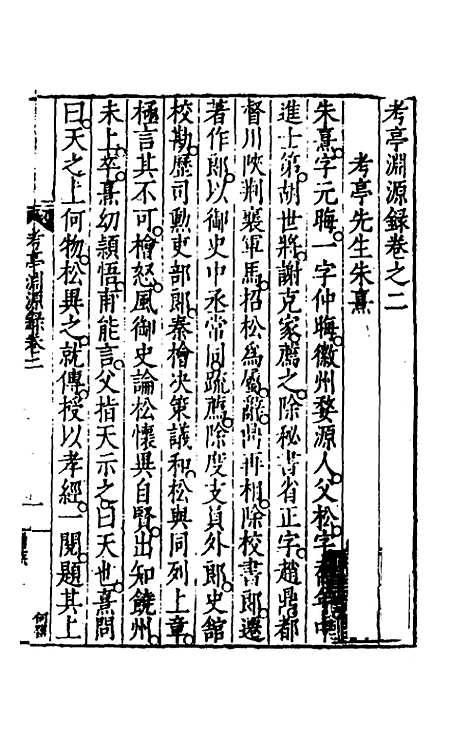 考亭淵源錄卷之二
考亭先生朱熹
朱熹字元晦一字仲晦徽州婺源人父松字喬年中
進士第胡世將謝克家薦之除秘書省正字趙鼎都
督川陜荆襄軍馬招松為屬辭鼎再相除校書郎遷
著作郎以御史中丞常同疏薦除度支員外郎史館
校勘歷司勳吏部郎秦檜决策議和松與同列上章
極言其不可檜怒風御史論松懷異自賢出知饒州
未上卒熹幼頴悟甫能言父指天示之曰天也熹問
曰天之上何物松異之就傅授以孝經一閱題其上
考亭淵源錄卷二
一